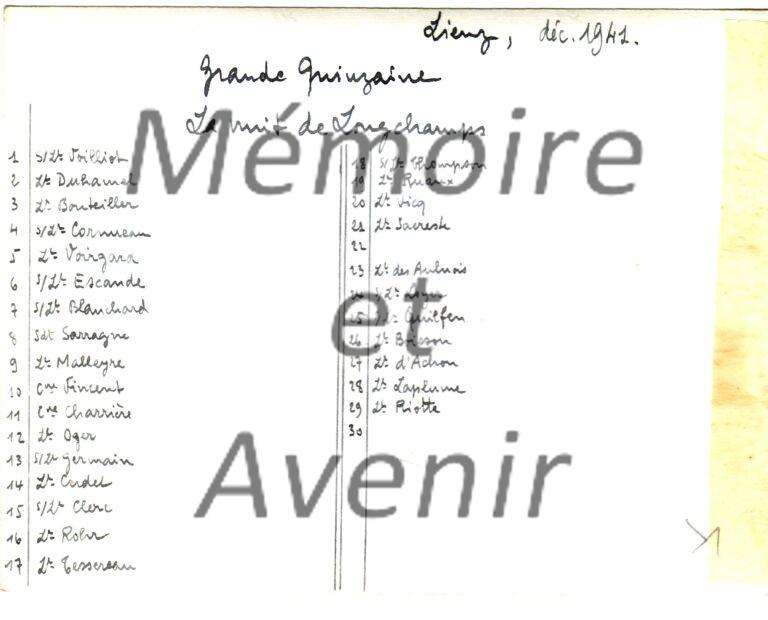 Lienz, déc. 1941.
Grande Quinzaine
La nuit de Longchamps
Mémoire
et
Avenir
1 S/Lt Voilliot
2 Lt Duhamel
3 Lt Bouteiller
4 S/Lt Cornueau
5 Lt Voirgard
6 S/Lt Escande
7 S/Lt Blanchard
8 Sdt Sarragne
9 Lt Malleyre
10 Cne Vincent
11 Cne Charrière
12 Lt Oger
13 S/Lt Germain
14 Lt Cadel
15 S/Lt Clerc
16 Lt Rohr
17 Lt Tessereau
18 S/Lt Thompson
19 Lt Ruaux
20 Lt Vicq
21 Lt Sacreste
22
23 Lt des Aulnois
24 S/Lt
25 Lt Quilfen
26 Lt Boisson
27 Lt d'Achon
28 Lt Laplume
29 Lt Riotte
30